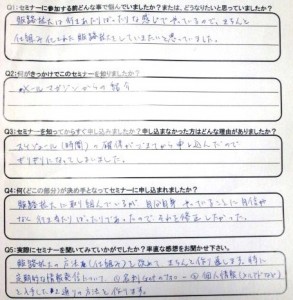 Q1:セミナーに参加する前どんな事で悩んでいましたか？または、どうなりたいと思っていましたか？
販路拡大は行きあたりばったりな感じで来ているので、きちんと
仕組み化された販路拡大をしていきたいと思っていました。
Q2:何がきっかけでこのセミナーを知りましたか？
メールマガジンからの紹介
Q3:セミナーを知ってからすぐ申し込みましたか？申し込まなかった方はどんな理由がありましたか？
スケジュール（時間）の確保ができてから申し込んだので
ギリギリになってしまいました。
Q4:何（どこの部分）が決め手となってセミナーに申し込まれましたか？
販路拡大に取り組んでいるが 自分自身 やっていることに自信が
なく 行きあたりばったりであったので それを修正したかった。
Q5:実際にセミナーを聞いてみていかがでしたか？率直な感想をお聞かせ下さい。
販路拡大の方法を（仕組み）を改めて きちんと作り直します。特に
定期的な情報発信について ①名刺 Get のフロー → ② 個人情報
と入手した 2通りの方法を作ります。